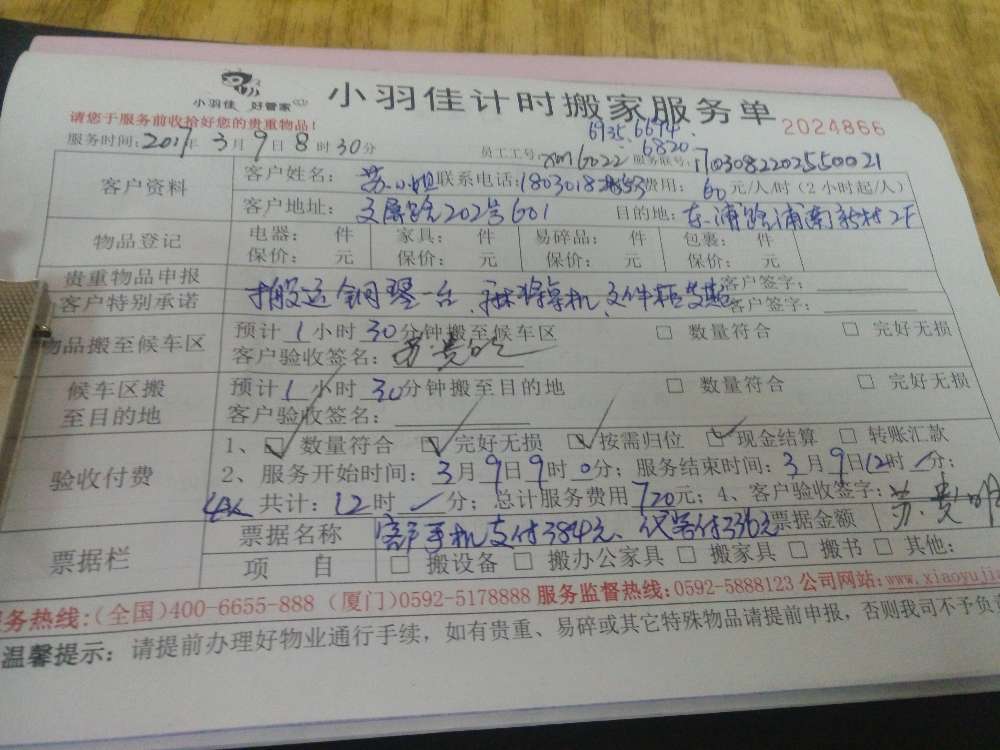 小羽佳 好管家
小羽佳计时搬家服务单
2024866
请您于服务前收拾好您的贵重物品！
6735.6694.
6820
服务时间：2017年3月9日8时30分
员工工号：xm6022 服务账号：1703082202550021
客户资料
客户姓名：苏小姐 联系电话：费用：60元/人/时（2小时起/人）
客户地址：文屏路202号601 目的地：东浦路浦南新村2F
物品登记
电器： 件 家具： 件 易碎品： 件 包裹： 件
保价： 元 保价： 元 保价： 元 保价： 元
贵重物品申报
客户签字：
客户特别承诺
搬运钢琴一台、麻将桌机、文件柜
客户签字：
物品搬至候车区
预计1小时30分钟搬至候车区 □ 数量符合 □ 完好无损
客户验收签名：苏贵
候车区搬至目的地
预计1小时30分钟搬至目的地 □ 数量符合 □ 完好无损
客户验收签名：
验收付费
1、☑ 数量符合 ☑ 完好无损 ☑ 按需归位 ☑ 现金结算 □ 转账汇款
2、服务开始时间：3月9日9时0分；服务结束时间：3月9日12时/分；
4人 共计：12时/分；总计服务费用720元；4、客户验收签字：苏贵
票据栏
票据名称 客户手机支付384元、代客付336元 票据金额
项 目 □ 搬设备 □ 搬办公家具 □ 搬家具 □ 搬书 □ 其他：
务热线：(全国)400-6655-888 (厦门)0592-5178888 服务监督热线：0592-5888123 公司网站：www.xiaoyujia
温馨提示：请提前办理好物业通行手续，如有贵重、易碎或其它特殊物品请提前申报，否则我司不予负